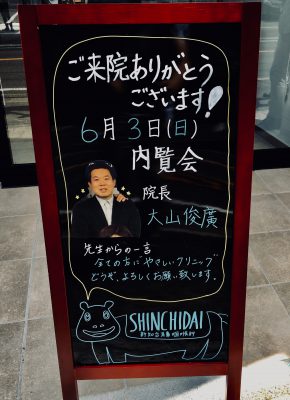 ご来院ありがとう
ございます!
6月3日(日)
内覧会
院長
大山俊廣
先生からの一言
全ての方にやさしいクリニック
どうぞ、よろしくお願い致します。
SHINCHIDAI